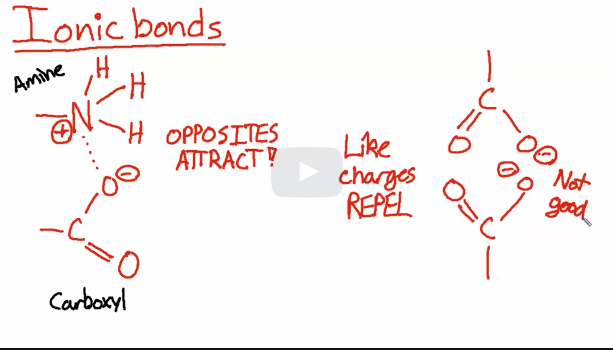 Ionic bonds
Amine
H
H
N
H
⊕
O ⊖
C
O
Carboxyl
OPPOSITES
ATTRACT!
Like
charges
REPEL
C
O
O ⊖
⊖
O
O
C
Not
good